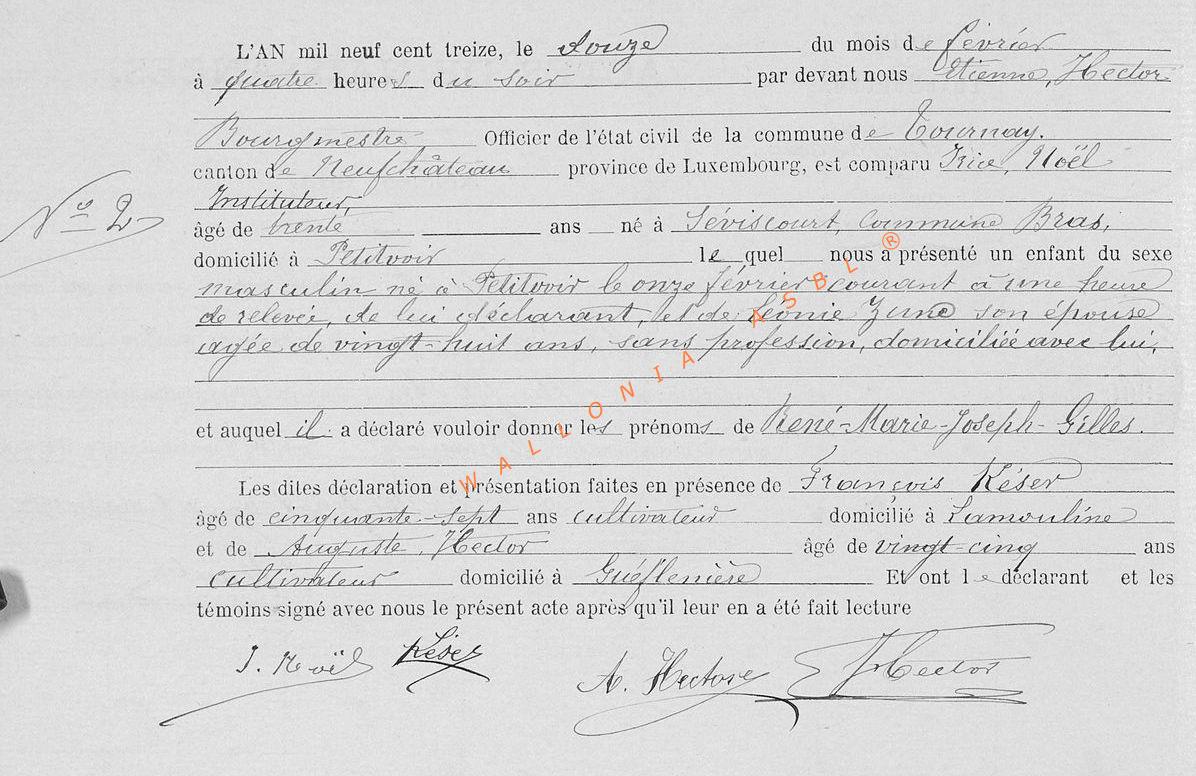 L'AN mil neuf cent treize, le douze du mois de février
à quatre heures du soir par devant nous Etienne, Hector
Bourgmestre Officier de l'état civil de la commune de Tournay.
canton de Neufchâteau province de Luxembourg, est comparu Noël
Instituteur,
Nº 2
âgé de trente ans né à Séviscourt, commune Bras,
domicilié à Petitvoir lequel nous a présenté un enfant du sexe
masculin né à Petitvoir le onze février courant à une heure
de relevée, de lui déclarant, et de Léonie son épouse
agée de vingt-huit ans, sans profession, domiciliée avec lui,
et auquel il a déclaré vouloir donner les prénoms de René-Marie-Joseph-Gilles.
WALLONIA ASBL ®
Les dites déclaration et présentation faites en présence de François Késer
âgé de cinquante-sept ans cultivateur domicilié à Lamouline
et de Auguste, Hector âgé de vingt-cinq ans
cultivateur domicilié à Et ont le déclarant et les
témoins signé avec nous le présent acte après qu'il leur en a été fait lecture
J. Noël Késer
A. Hector E Hector